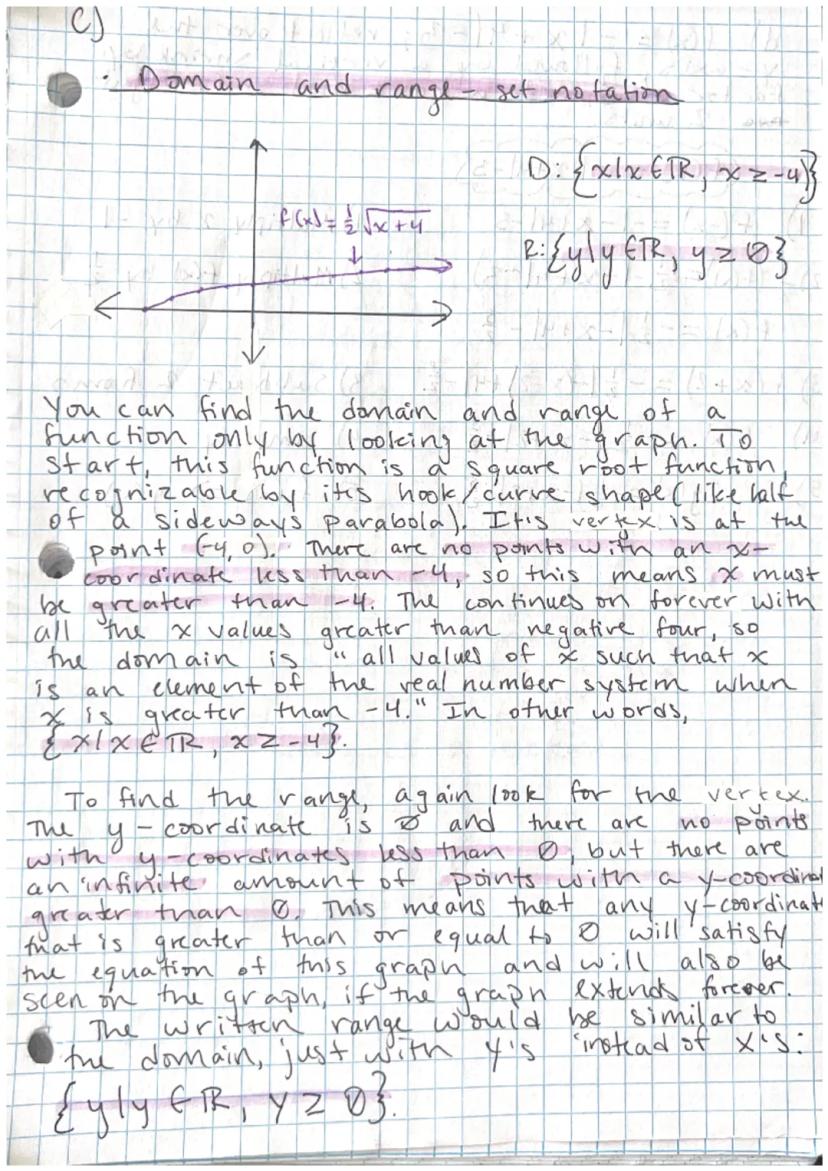 C)
Domain and range - set notation
D: {x|x ∈ ℝ, x ≥ -4}
f(x) = ½√x+4
R: {y|y ∈ ℝ, y ≥ 0}
You can find the domain and range of a
function only by looking at the graph. To
start, this function is a square root function,
recognizable by it's hook/curve shape (like half
of a sideways parabola). It's vertex is at the
point (-4, 0). There are no points with an x-
coordinate less than -4, so this means x must
be greater than -4. The continues on forever with
all the x values greater than negative four, so
the domain is "all values of x such that x
is an element of the real number system when
x is greater than -4." In other words,
{x|x ∈ ℝ, x ≥ -4}.
To find the range, again look for the vertex.
The y-coordinate is 0 and there are no points
with y-coordinates less than 0, but there are
an infinite amount of points with a y-coordinat
greater than 0. This means that any y-coordinat
that is greater than or equal to 0 will satisfy
the equation of this graph and will also be
seen on the graph, if the graph extends forever.
The written range would be similar to
the domain, just with y's instead of x's:
{y|y ∈ ℝ, y ≥ 0}.